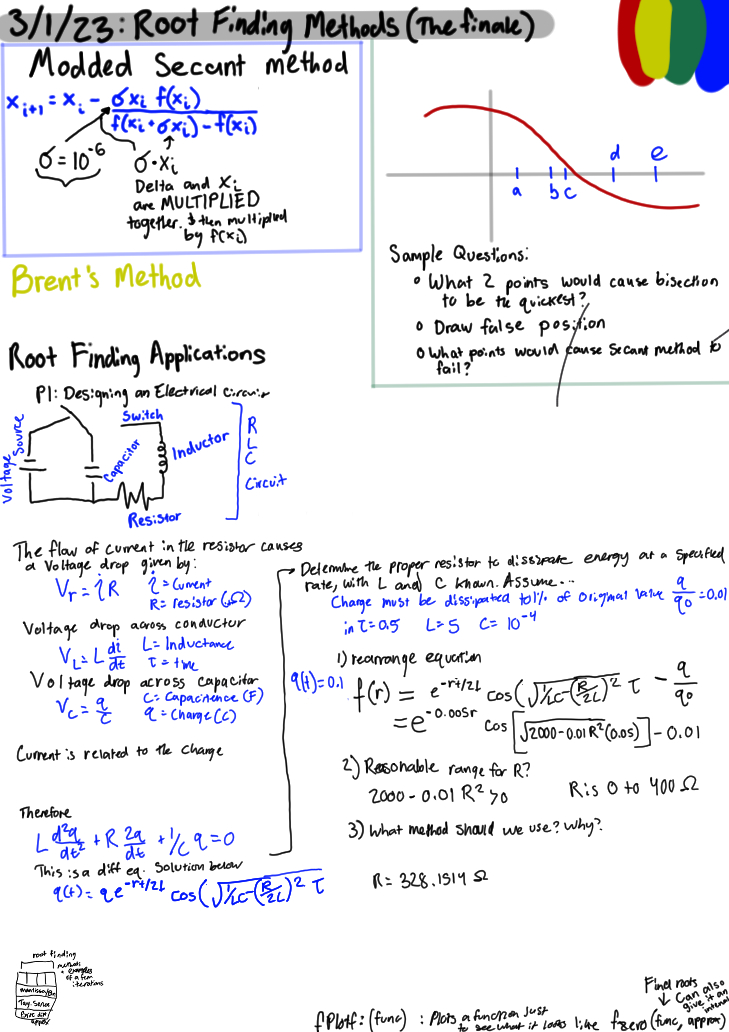 3/1/23: Root Finding Methods (The finale)
Modded Secant method
x_{i+1} = x_i - σx_i f(x_i) / f(x_i + σx_i) - f(x_i)
σ = 10^{-6}
σ·x_i
Delta and x_i
are MULTIPLIED
together. & then multiplied
by f(x_i)
Brent's Method
a b c d e
Sample Questions:
° What 2 points would cause bisection
to be the quickest?
o Draw false position
o What points would cause Secant method to
fail?
Root Finding Applications
P1: Designing an Electrical Circuit
Switch
Voltage Source
Capacitor
Inductor
Resistor
R
L
C
Circuit
The flow of current in the resistor causes
a Voltage drop given by:
V_r = iR
i = Current
R = resistor (Ω)
Voltage drop across conductor
V_L = L di/dt
L = Inductance
τ = time
Voltage drop across capacitor
V_C = q/C
C = Capacitence (F)
q = Charge (C)
Current is related to the charge
Therefore
L d²q/dt² + R 2q/dt + 1/C q = 0
This is a diff eq. Solution below
q(t) = qe^{-rt/2L} cos(√1/LC - (R/2L)² τ
Determine the proper resistor to dissipate energy at a specified
rate, with L and C known. Assume...
Charge must be dissipated to 1% of original value q/q0 = 0.01
in τ = 0.5 L = 5 C = 10^{-4}
1) rearrange equation
q(t) = 0.1
f(r) = e^{-rt/2L} cos(√1/LC - (R/2L)² τ - q/q0
= e^{-0.005r} cos [√2000 - 0.01R² (0.05)] - 0.01
2) Reasonable range for R?
2000 - 0.01 R² > 0
R is 0 to 400 Ω
3) What method should we use? Why?
R = 328.1514 Ω
root finding
methods
+ examples
of a few
iterations
Tay. Series
fPlotf: (func) : Plots a function just
to see what it looks like
Find roots
↓ Can also
give it an
interval
fzero(func, approx)